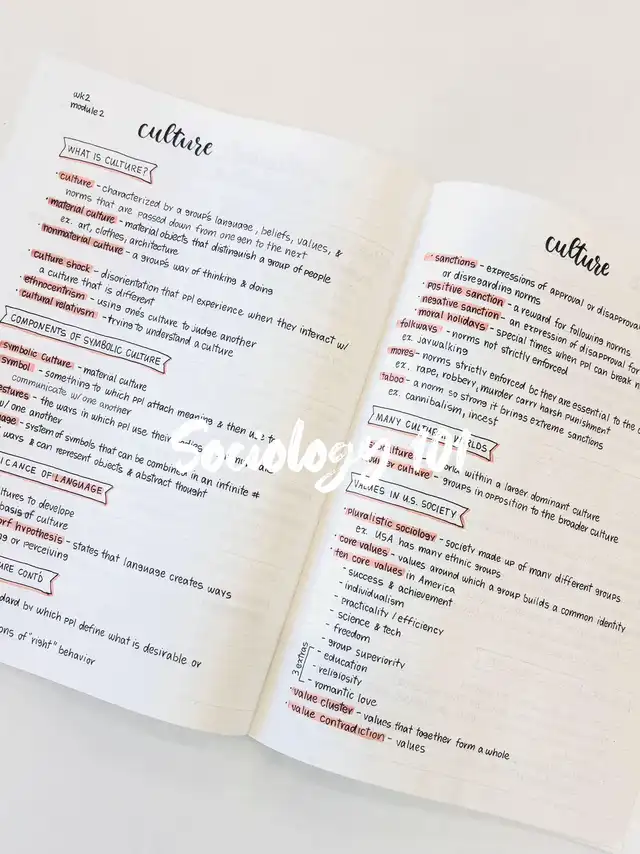 wk2
module 2
culture
WHAT IS CULTURE?
· culture - characterized by a group's language, beliefs, values, &
norms that are passed down from one gen to the next
· material culture - material objects that distinguish a group of people
ex. art, clothes, architecture
· nonmaterial culture - a group's way of thinking & doing
· culture shock - disorientation that ppl experience when they interact w/
a culture that is different
· ethnocentrism - using one's culture to judge another
· cultural relativism - trying to understand a culture
COMPONENTS OF SYMBOLIC CULTURE
symbolic culture - material culture
symbol - something to which ppl attach meaning & then use to
communicate w/ one another
estures - the ways in which ppl use their
w/ one another
uage - system of symbols that can be combined in an infinite #
ways & can represent objects & abstract thought
ICANCE OF LANGUAGE
ltures to develop
basis of culture
orf hypothesis - states that language creates ways
ng or perceiving
URE CONT'D
dard by which ppl define what is desirable or
ons of "right" behavior
culture
· sanctions - expressions of approval or disapprova
or disregarding norms
· positive sanction - a reward for following norms
· negative sanction - an expression of disapproval for
· moral holidays - special times when ppl can break n
folkways - norms not strictly enforced
ex. jaywalking
mores - norms strictly enforced bc they are essential to the c
ex. rape, robbery, murder carry harsh punishment
taboo - a norm so strong it brings extreme sanctions
ex. cannibalism, incest
MANY CULTU WORLDS
ulture - world within a larger dominant culture
er culture - groups in opposition to the broader culture
VALUES IN U.S. SOCIETY
· pluralistic sociology - society made up of many different groups
ex. USA has many ethnic groups
· core values - values around which a group builds a common identity
· ten core values in America
- success & achievement
- individualism
- practicality / efficiency
- science & tech
- freedom
- group superiority
3 extras
- education
- religiosity
- romantic love
· value cluster - values that together form a whole
· value contradiction - values
Sociology 101